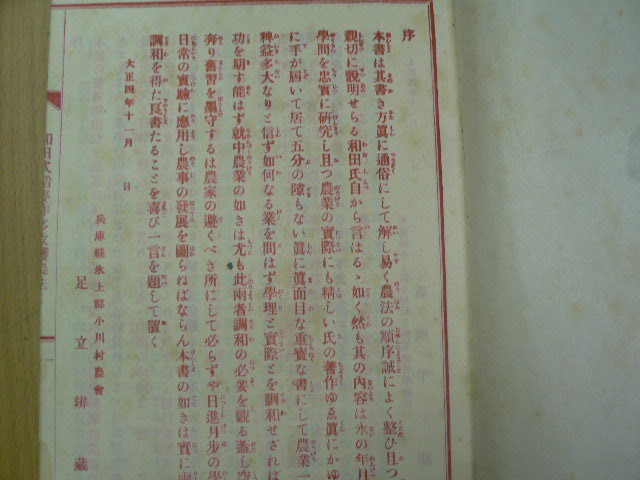 序
本書は其書き方眞に通俗にして解し易く農法の順序誠によく整ひ且つ
親切に説明せらる和田氏自から言はるゝ如く然も其の内容は永の年月
學問を忠實に研究し且つ農業の實際にも精しい氏の著作ゆゑ眞にかゆ
に手が届いて居て五分の隙もない眞に眞面目な重寳な書にして農業一
裨益多大なりと信ず如何なる業を問はず學理と實際とを調和せざれば
功を期す能はず就中農業の如きは尤も此兩者調和の必要を觀る蓋し空
奔り舊習を墨守するは農家の避くべき所にして必らずや日進月歩の學
日常の實驗に應用し農事の發展を圖らねばならん本書の如きは實に兩
調和を得た良書たることを喜び一言を題して置く
大正四年十一月 日
兵庫縣氷上郡小川村農會
足立
藏